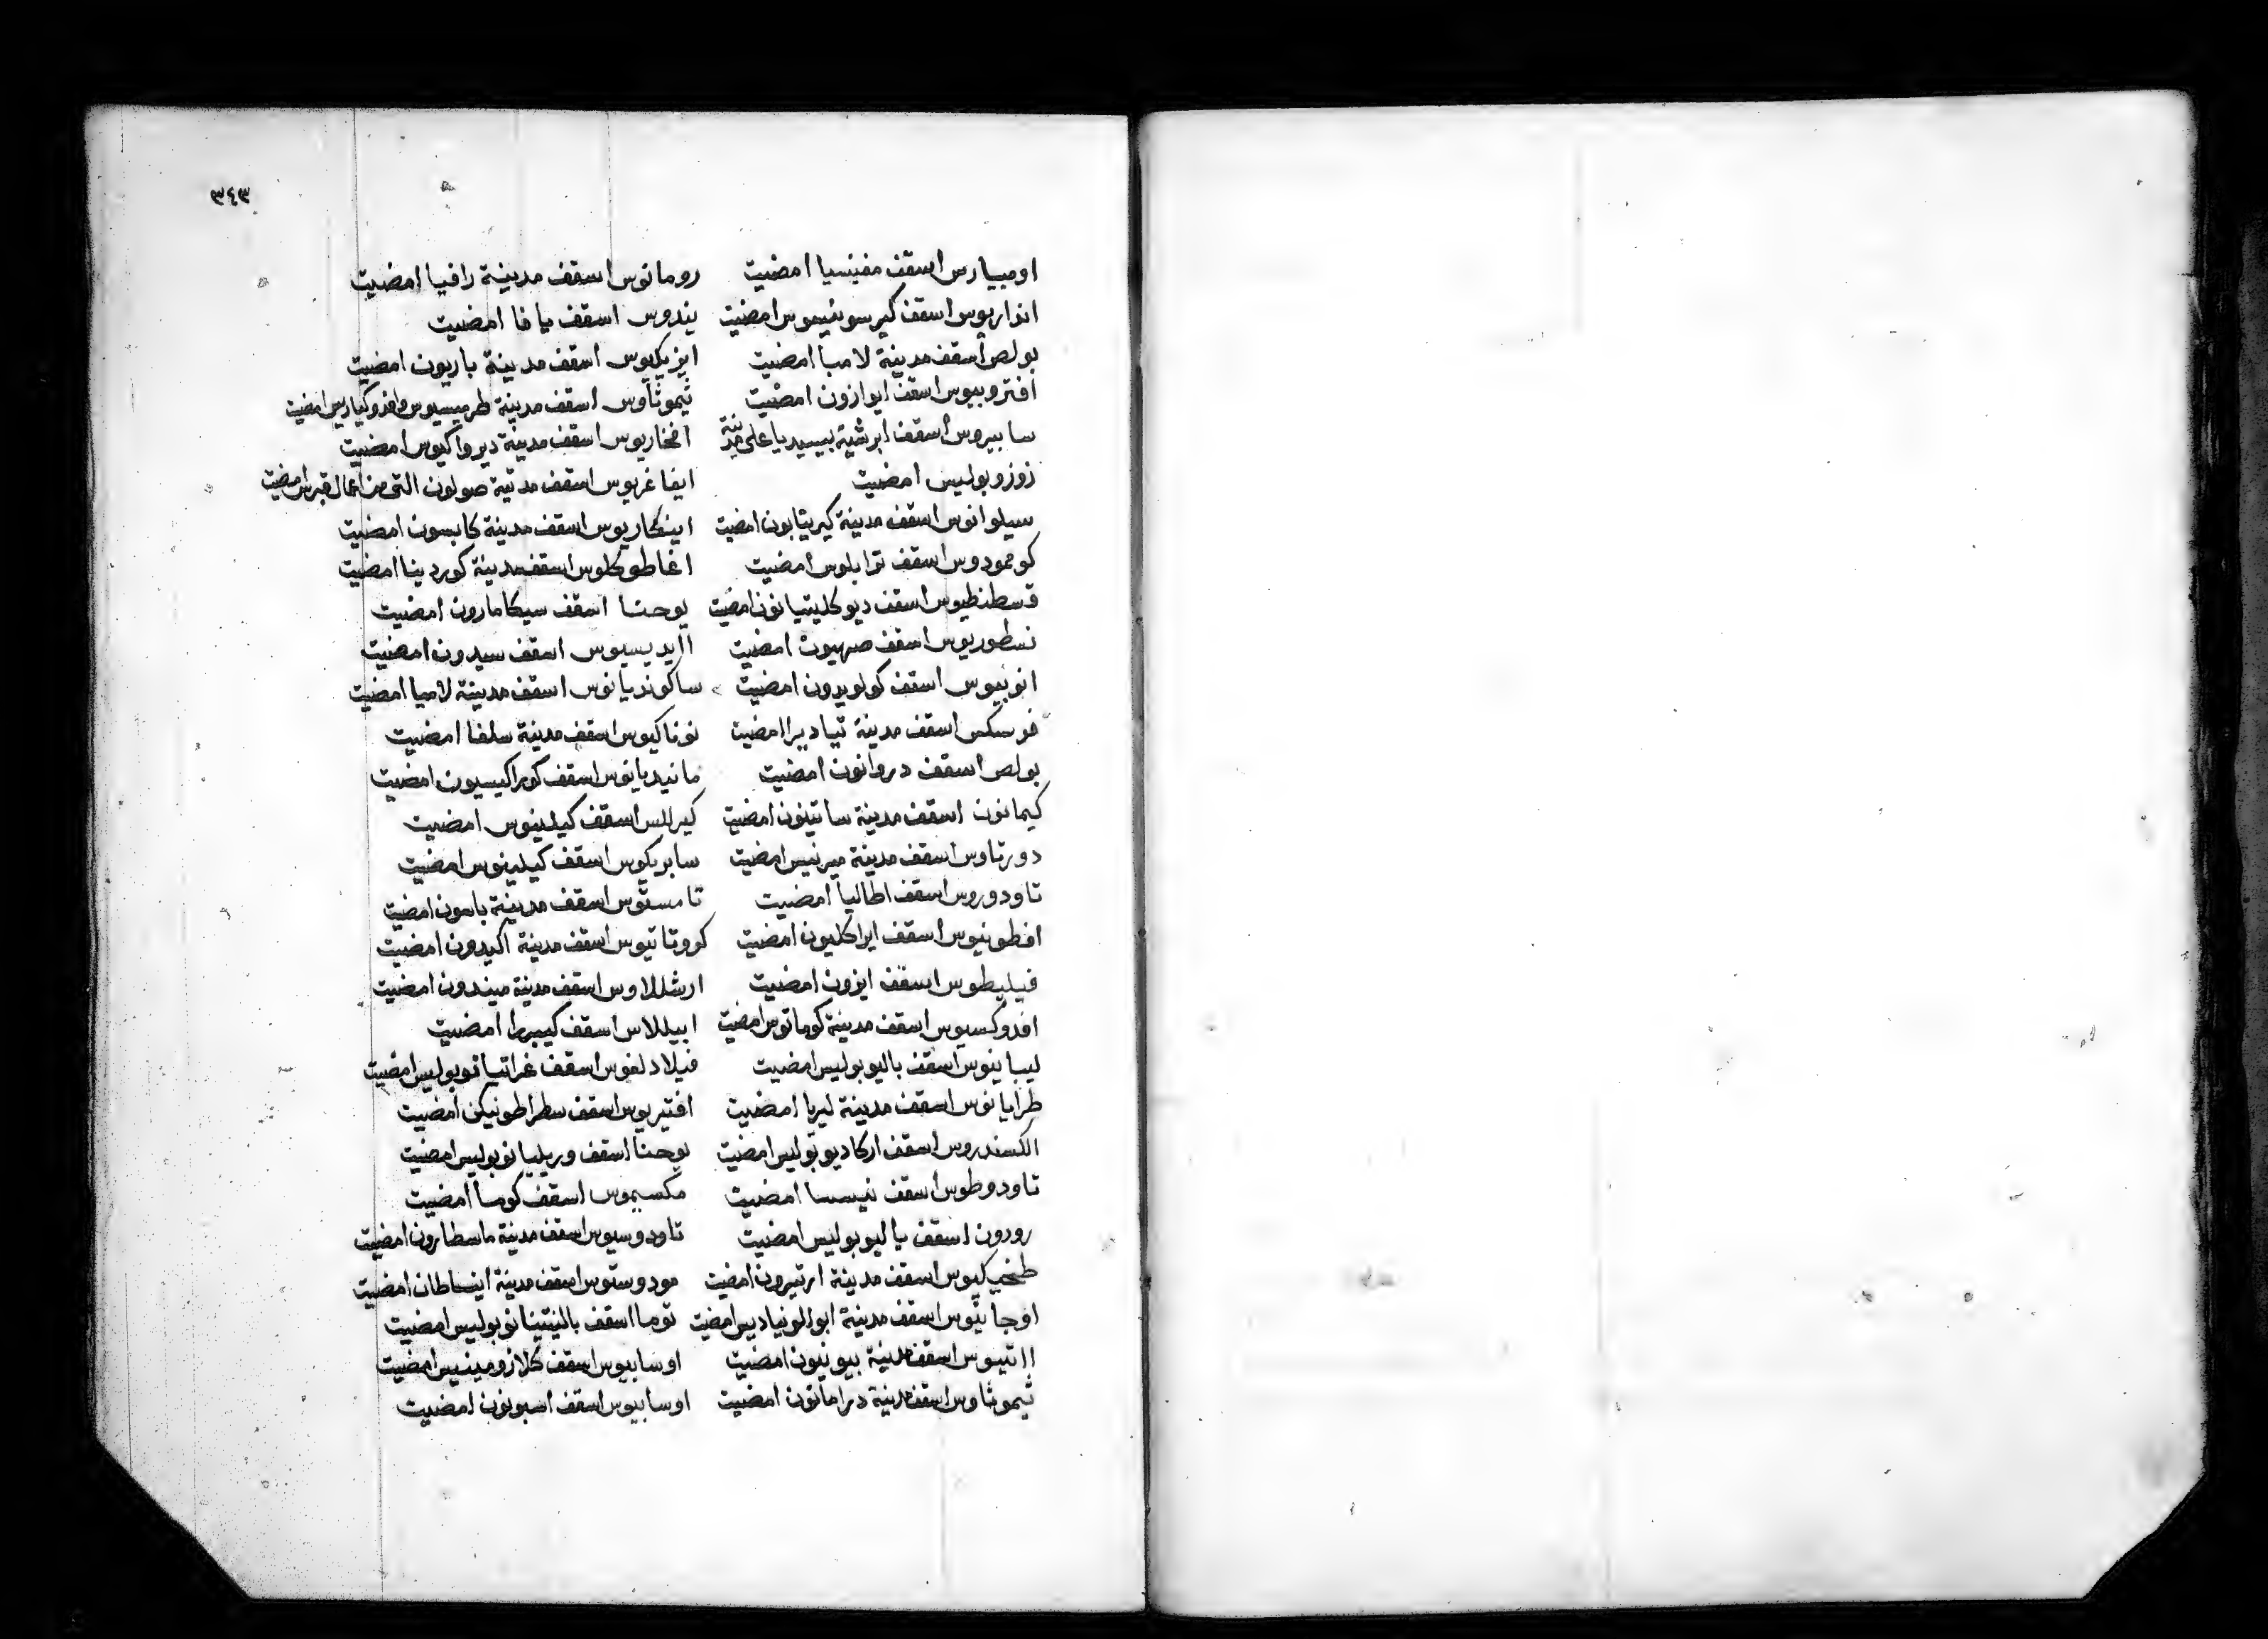 ٣٤٣
اومبيارس اسقف مغنيسيا امضيت
انداريوس اسقف كيرسونيسوس امضيت
بولص اسقف مدينة لامبا امضيت
افتروبيوس اسقف ايوازون امضيت
سابيروس اسقف ابرشية بيسيديا على مدينة
زوزوبوليس امضيت
سيلوانوس اسقف مدينة كيريتابون امضيت
كومودوس اسقف ترابلوس امضيت
قسطنطيوس اسقف ديوكليتيانون امضيت
نسطوريوس اسقف صهيون امضيت
انوبيوس اسقف كولويدون امضيت
فوسكس اسقف مدينة تياديرا امضيت
بولص اسقف دروانون امضيت
كيمانون اسقف مدينة ساتينون امضيت
دورتاوس اسقف مدينة ميرنيس امضيت
تاودوروس اسقف اطاليا امضيت
افطونيوس اسقف ايراكليون امضيت
فيليطوس اسقف ايزون امضيت
افدوكسيوس اسقف مدينة كوماتوس امضيت
ليبانيوس اسقف باليوبوليس امضيت
طرايانوس اسقف مدينة ليربا امضيت
الكسندروس اسقف اركاديوبوليس امضيت
تاودوطوس اسقف نيسسا امضيت
رودون اسقف باليوبوليس امضيت
اسقف مدينة ارتيرون امضيت
اوجانيوس اسقف مدينة ابوللونياديس امضيت
ااتيوس اسقف مدينة بيونيون امضيت
ثيموثاوس اسقف مدينة دراماتون امضيت
رومانوس اسقف مدينة رافيا امضيت
يندوس اسقف يافا امضيت
ايزيكيوس اسقف مدينة باريون امضيت
ثيموثاوس اسقف مدينة طرميسيوس وافدوكيارس امضيت
افخاريوس اسقف مدينة ديرواكيوس امضيت
ايفاغريوس اسقف مدينة صولون التى من اعمال قبرس امضيت
اينكاريوس اسقف مدينة كابسون امضيت
اغاطوكلوس اسقف مدينة كوردينا امضيت
يوحنا اسقف سيكامارون امضيت
اايديسيوس اسقف سيدون امضيت
ساكونديانوس اسقف مدينة لاميا امضيت
نوناكيوس اسقف مدينة سلغا امضيت
مانيديانوس اسقف كوراكيسيون امضيت
كيرللس اسقف كيلينوس امضيت
سابريكوس اسقف كيلينوس امضيت
تامستوس اسقف مدينة باسون امضيت
كروتاتيوس اسقف مدينة اكيدون امضيت
ارشللاوس اسقف مدينة ميندون امضيت
ابيللاس اسقف كيبرا امضيت
فيلادلفوس اسقف غراتيانوبوليس امضيت
افتيريوس اسقف سطراطونيكن امضيت
يوحنا اسقف وريليانوبوليس امضيت
مكسيموس اسقف كوما امضيت
تاودوسيوس اسقف مدينة ماسطارون امضيت
مودوستوس اسقف مدينة اينساطان امضيت
توما اسقف بالنتينانوبوليس امضيت
اوسابيوس اسقف كلازومينيس امضيت
اوسابيوس اسقف اسبونون امضيت